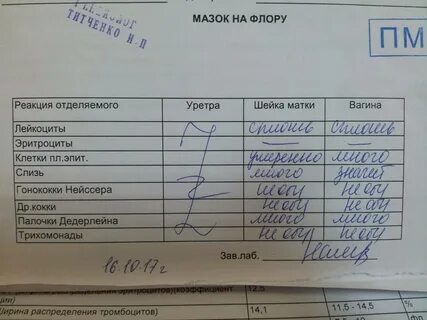 ТИТЧЕНКО И П
МАЗОК НА ФЛОРУ
ПМ
Реакция отделяемого Уретра Шейка матки Вагина
Лейкоциты сплошь сплошь
Эритроциты — —
Клетки пл.эпит. умеренно много
Слизь много значит
Гонококки Нейссера не обн не обн
Др.кокки не обн не обн
Палочки Дедерлейна много много
Трихомонады не обн не обн
Зав.лаб.
16.10.17г
(коэффициент 12,5
ции)
Ширина распределения тромбоцитов) 14,1 11,5 - 14,5 %